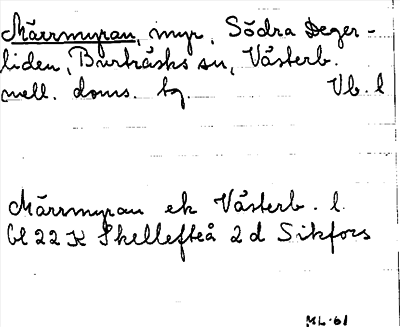 Märrmyran, myr, Södra Deger-
liden, Burträsks sn, Västerb.
mell. doms. bg. Vb. l
Märrmyran ek Västerb. l.
bl 22 K Skellefteå 2 d Sikfors
ML-61